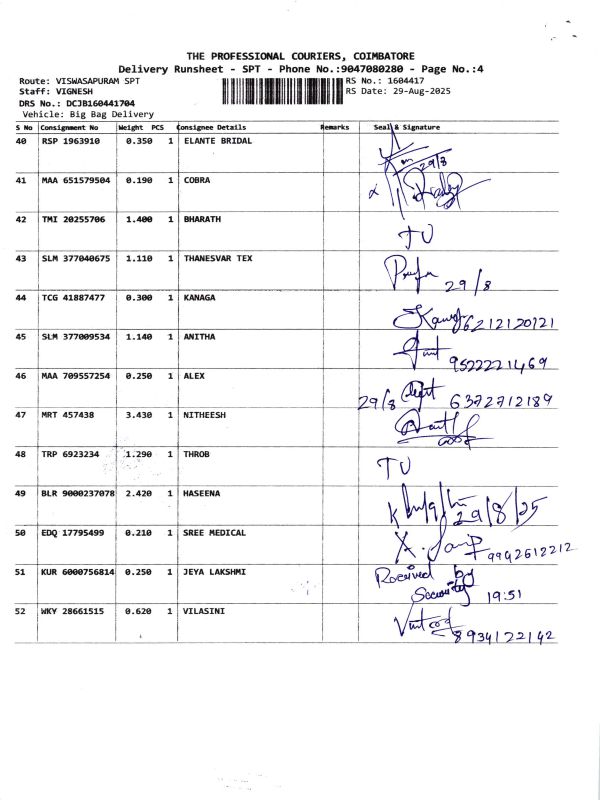 THE PROFESSIONAL COURIERS, COIMBATORE
Delivery Runsheet - SPT - Phone No.:9047080280 - Page No.:4
Route: VISWASAPURAM SPT RS No.: 1604417
Staff: VIGNESH RS Date: 29-Aug-2025
DRS No.: DCJB160441704
Vehicle: Big Bag Delivery
S No Consignment No Weight PCS Consignee Details Remarks Seal & Signature
40 RSP 1963910 0.350 1 ELANTE BRIDAL 29/8
41 MAA 651579504 0.190 1 COBRA
42 TMI 20255706 1.400 1 BHARATH TU
43 SLM 377040675 1.110 1 THANESVAR TEX 29/8
44 TCG 41887477 0.300 1 KANAGA 6212120121
45 SLM 377009534 1.140 1 ANITHA 9522221469
46 MAA 709557254 0.250 1 ALEX 29/8 6372712189
47 MRT 457438 3.430 1 NITHEESH
48 TRP 6923234 1.290 1 THROB TU
49 BLR 9000237078 2.420 1 HASEENA 29/8/25
50 EDQ 17795499 0.210 1 SREE MEDICAL 9942612212
51 KUR 6000756814 0.250 1 JEYA LAKSHMI Received by
Security 19:51
52 WKY 28661515 0.620 1 VILASINI 8934122142